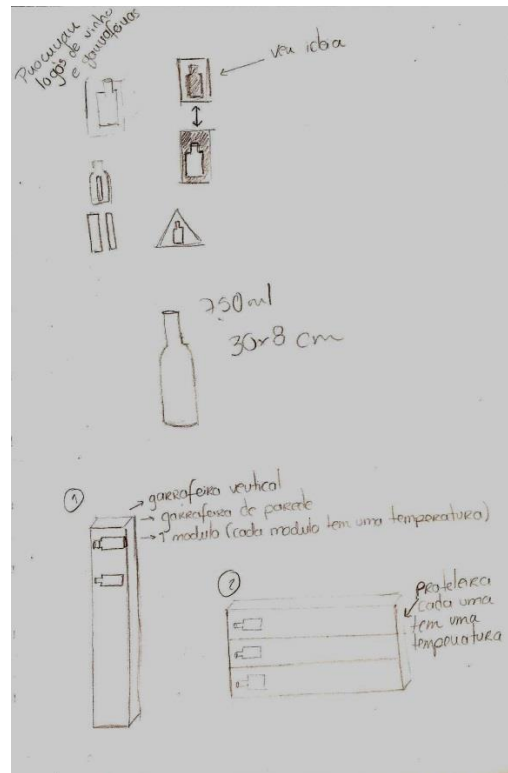 Procurar
logos de vinho
e garrafeiras
ver ideia
750ml
30x8 cm
1
→ garrafeira vertical
→ garrafeira de parede
→ 1 modulo (cada modulo tem uma temperatura)
2
prateleira
cada uma
tem uma
temperatura